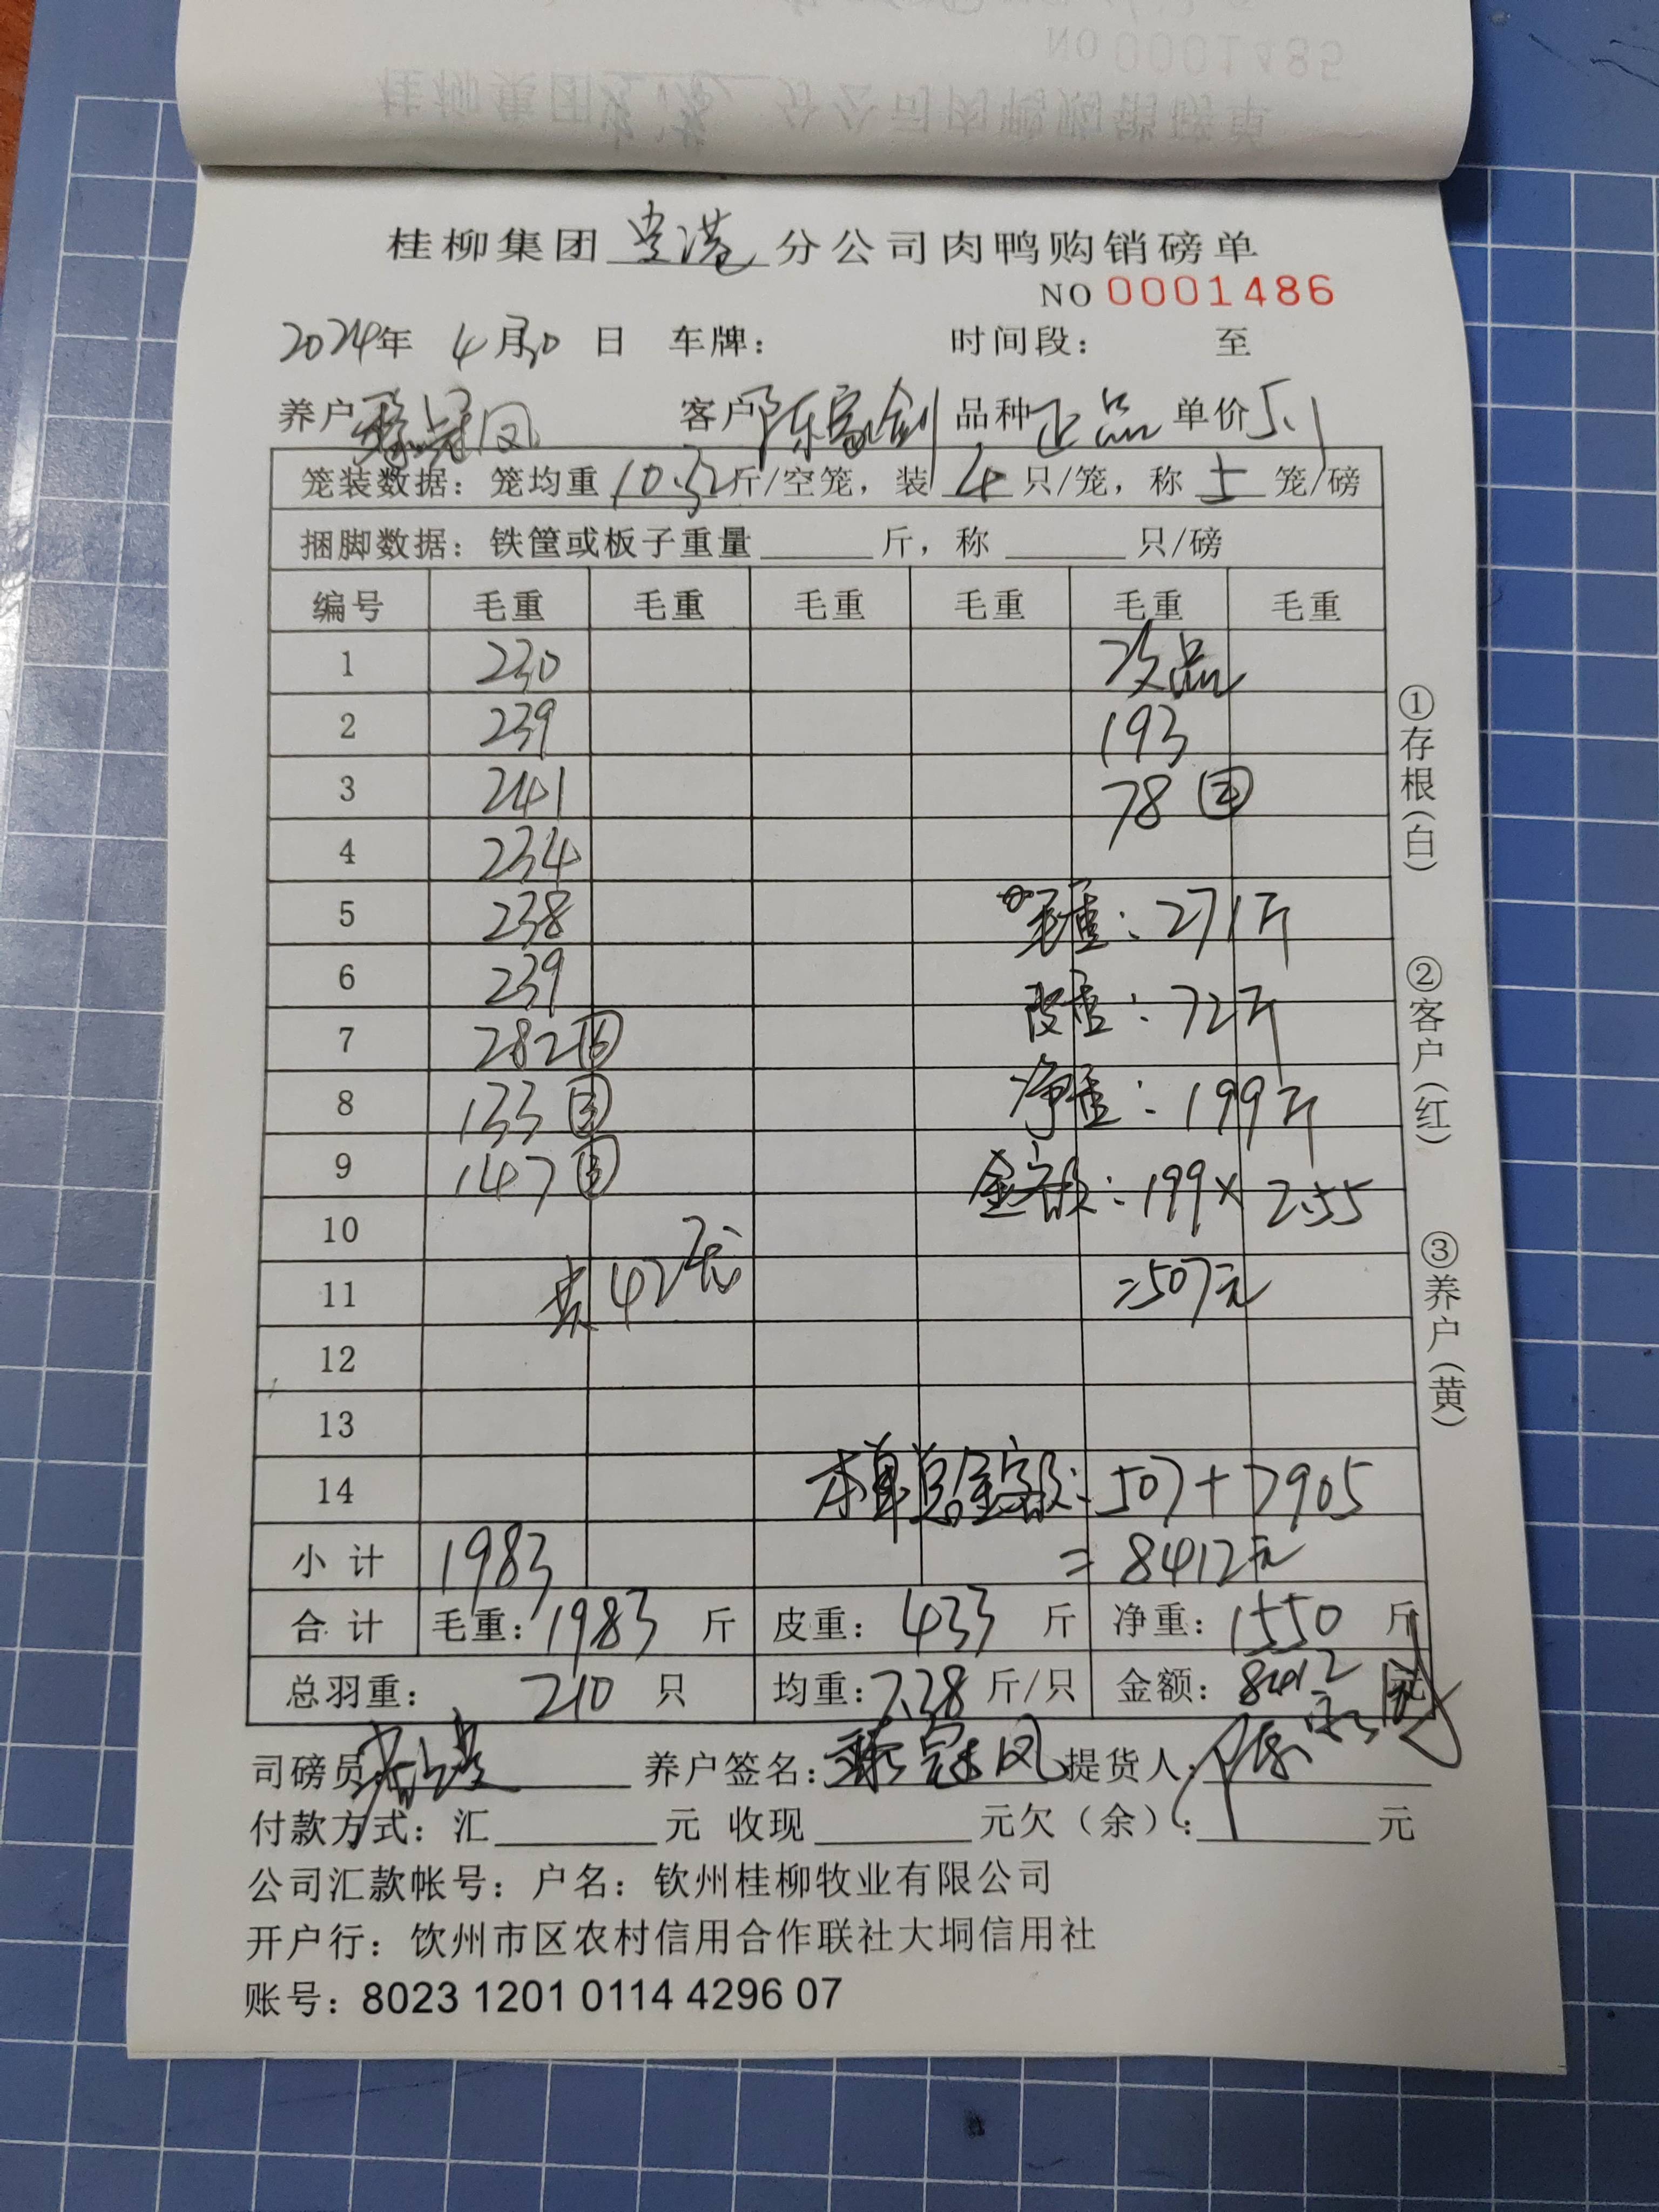 NO 0001485
桂柳集团贵港分公司肉鸭购销磅单
桂柳集团贵港分公司肉鸭购销磅单
NO 0001486
2024年 4月30日 车牌： 时间段： 至
养户 冠凤 客户 陈家剑 品种 正品 单价 5.1
笼装数据：笼均重 10.32 斤/空笼，装 4 只/笼，称 5 笼/磅
捆脚数据：铁筐或板子重量 斤，称 只/磅
编号 毛重 毛重 毛重 毛重 毛重 毛重
1 230 次品
2 239 193
3 241 78
4 234
5 238 毛重：271斤
6 239 皮重：72斤
7 282 ⑥ 净重：199斤
8 133 ③ 金额：199×2.55
9 147 ③
10
11 共42笼 =507元
12
13
14 本单总金额：507+7905
小计 1983 =8412元
合计 毛重：1983 斤 皮重：433 斤 净重：1550 斤
总羽重： 210 只 均重：7.38 斤/只 金额：8412 元
司磅员 养户签名： 冠凤 提货人：陈
付款方式：汇 元 收现 元欠（余）： 元
公司汇款帐号：户名：钦州桂柳牧业有限公司
开户行：饮州市区农村信用合作联社大垌信用社
账号：8023 1201 0114 4296 07
①存根（白）
②客户（红）
③养户（黄）